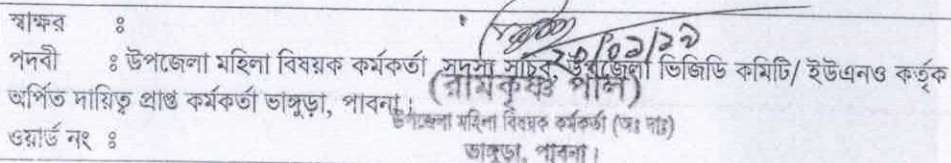 স্বাক্ষর ঃ
পদবী ঃ উপজেলা মহিলা বিষয়ক কর্মকর্তা সদস্য সচিব, উপজেলা ভিজিডি কমিটি/ ইউএনও কর্তৃক
অর্পিত দায়িত্ব প্রাপ্ত কর্মকর্তা ভাঙ্গুড়া, পাবনা।
(রামকৃষ্ণ পাল)
উপজেলা মহিলা বিষয়ক কর্মকর্তা (অঃ দাঃ)
ভাঙ্গুড়া, পাবনা।
ওয়ার্ড নং ঃ